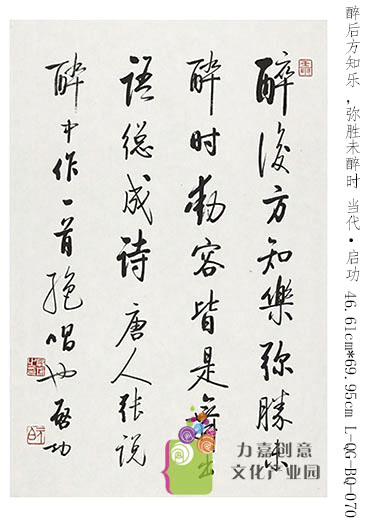 醉後方知樂弥勝未
醉时動容皆是舞出
語總成詩 唐人张说
醉中作一首絶唱也 啓功
醉后方知乐,弥胜未醉时 当代·启功 46.61cm*69.95cm L-QG-BQ-070
力嘉创意
文化产业园